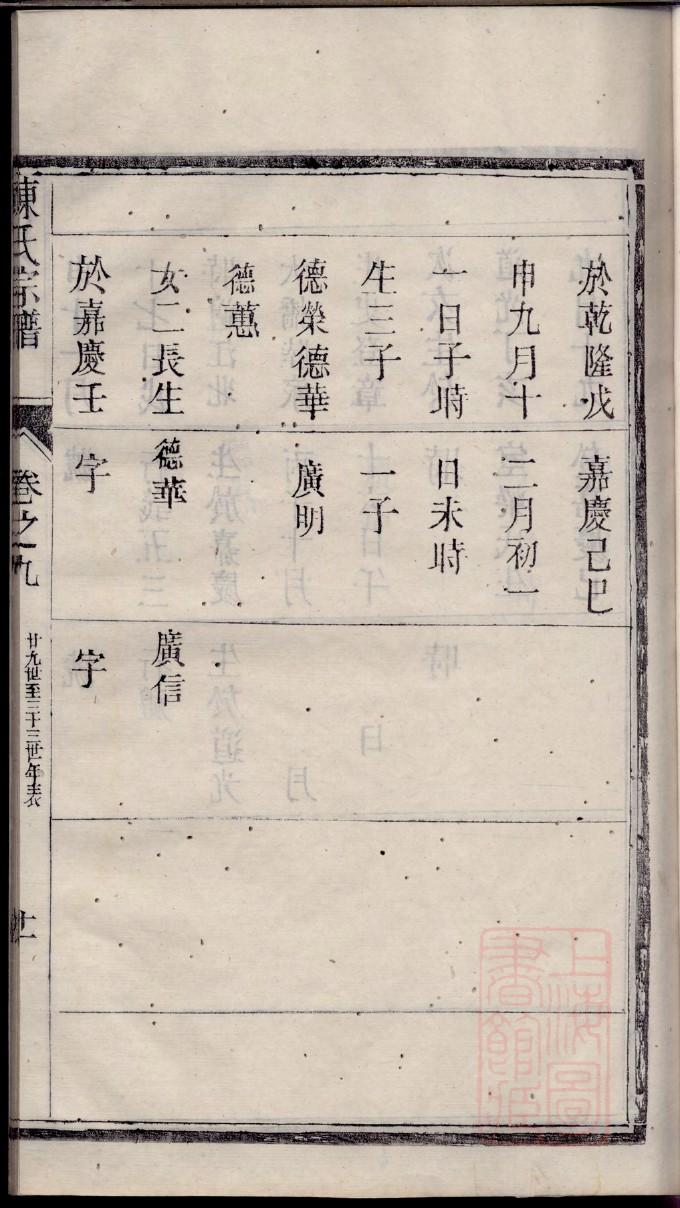 於乾隆戊
申九月十
一日子時
生三子
德榮德華
德蕙
女二長生
於嘉慶壬
嘉慶己巳
二月初一
日未時
一子
廣明
德華
字
廣信
字
陳氏宗譜
卷之九
廿九世至三十三世年表
十一
上海圖書館藏